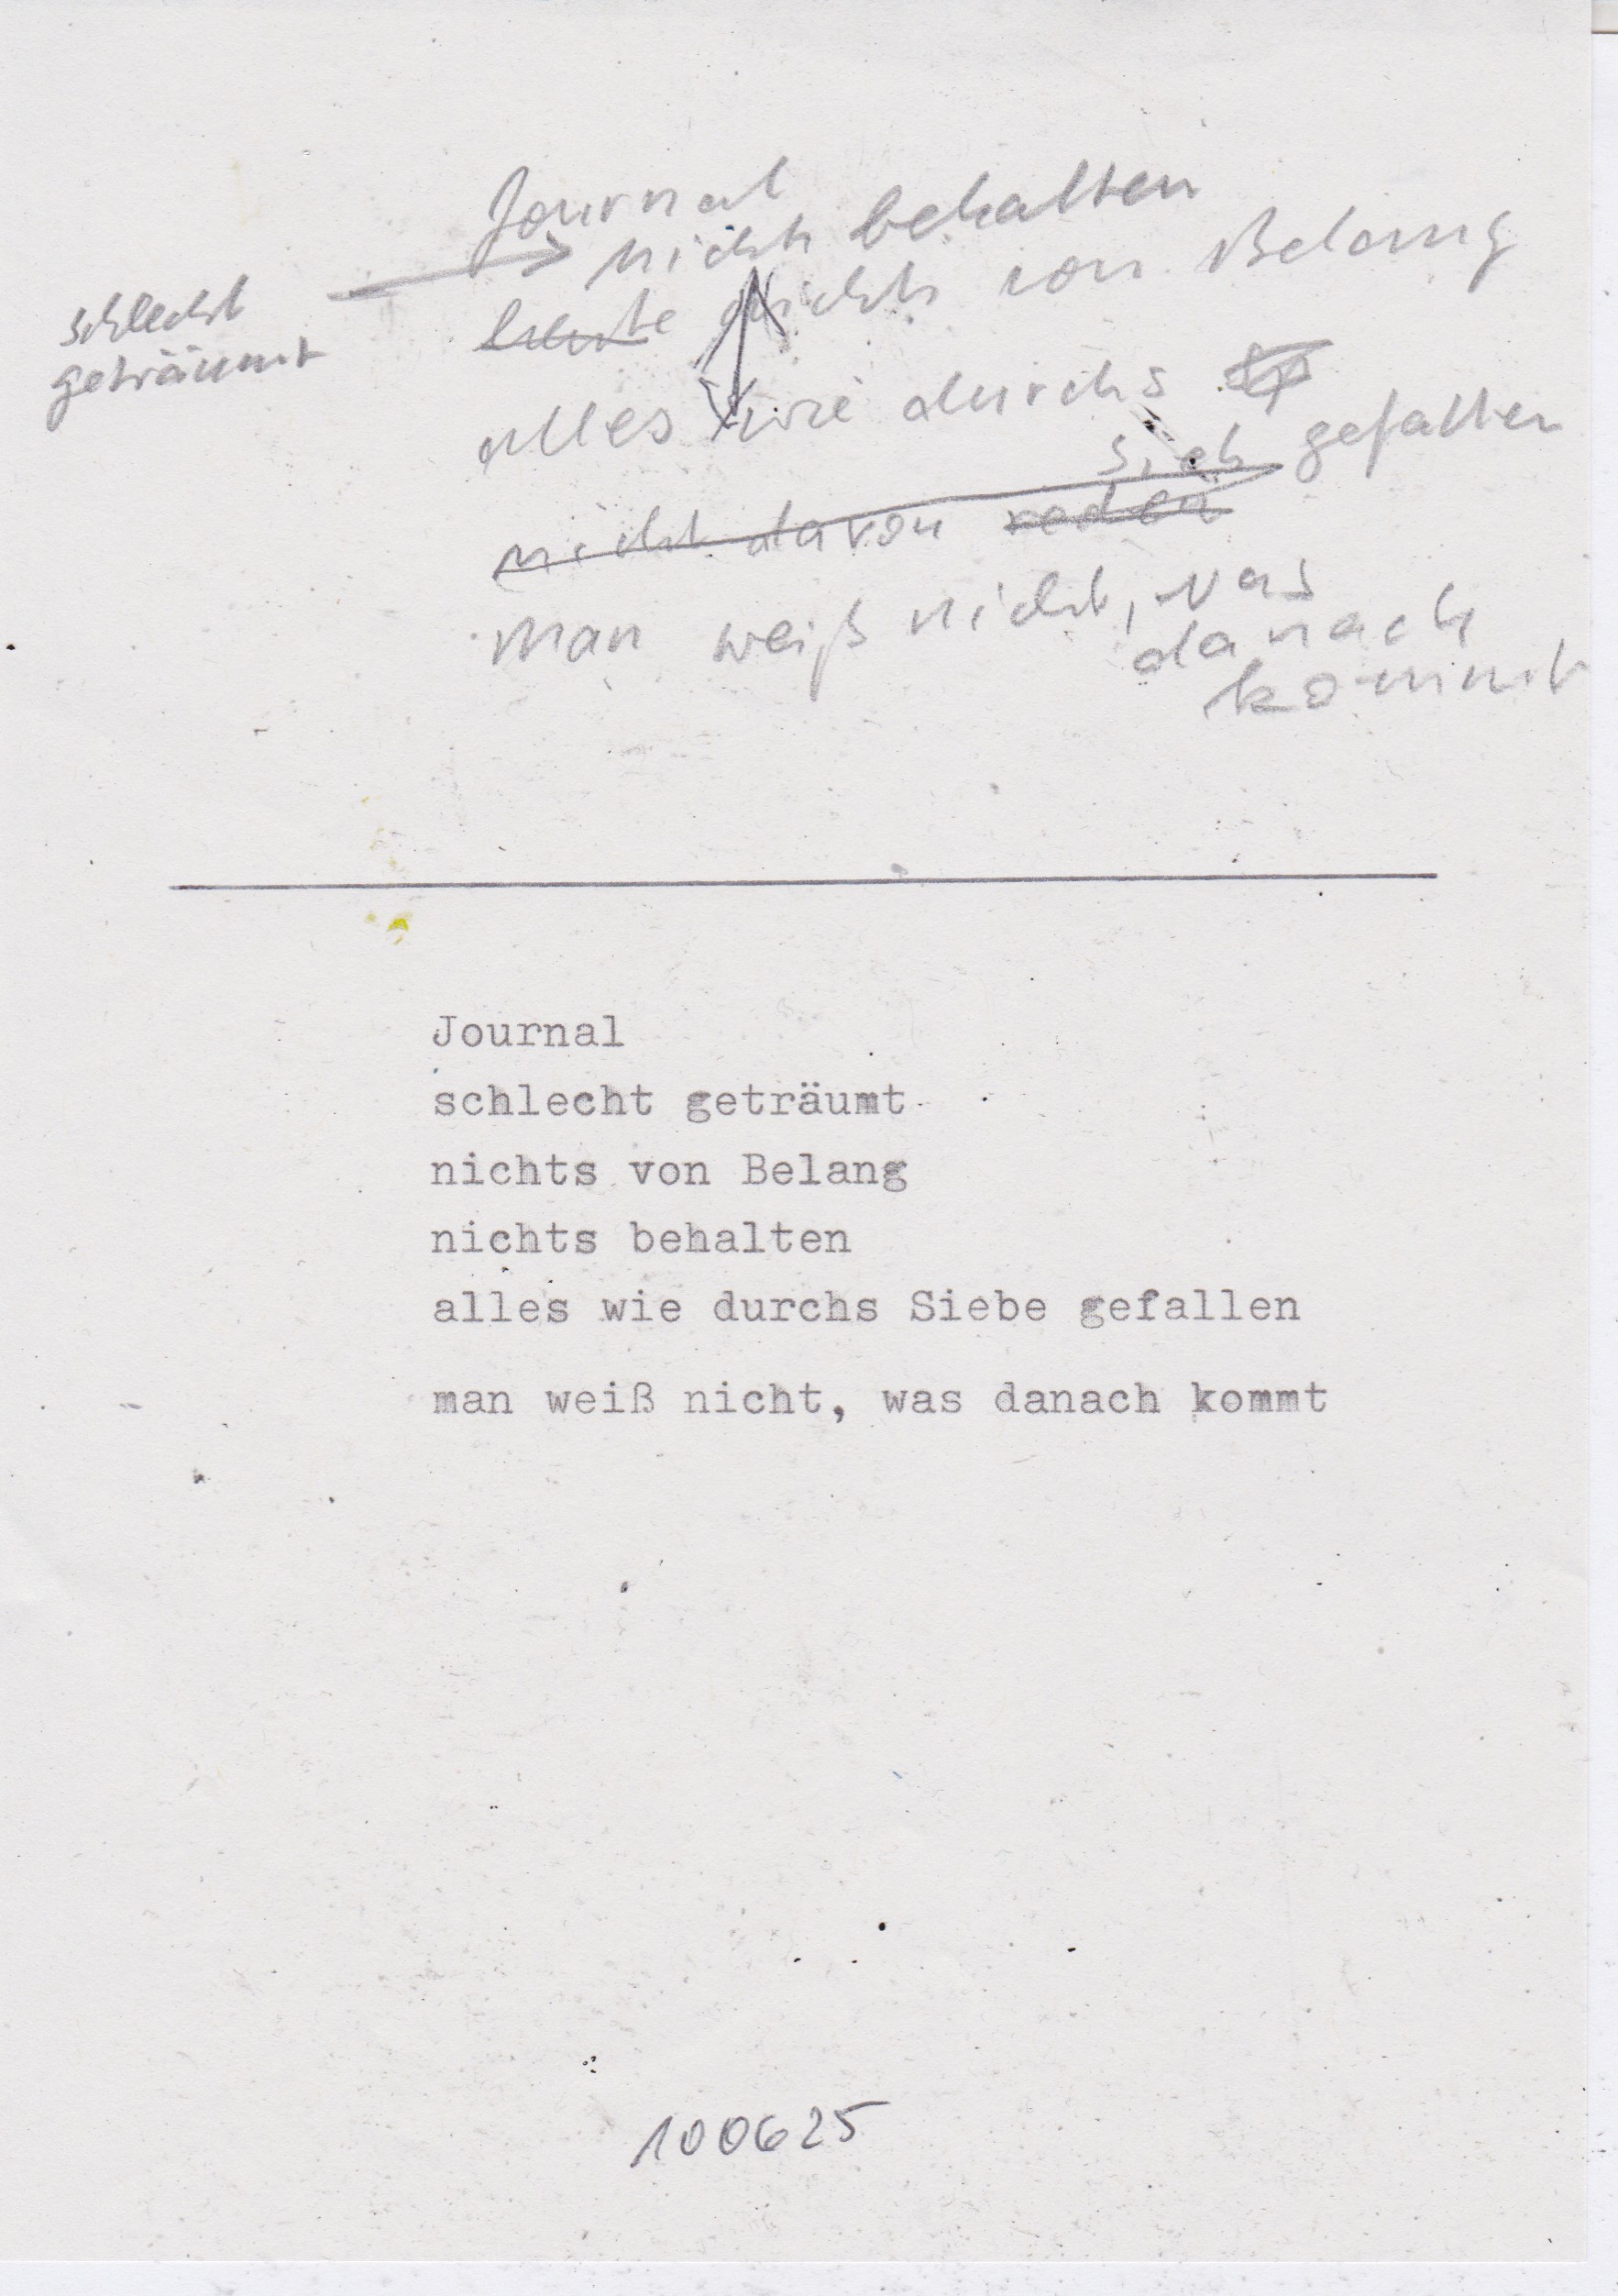 Journal
nichts behalten
schlecht
geträumt
heute nichts von Belang
alles wie durchs
Sieb gefallen
nicht davon reden
man weiß nicht, was
danach
kommt
Journal
schlecht geträumt
nichts von Belang
nichts behalten
alles wie durchs Siebe gefallen
man weiß nicht, was danach kommt
100625